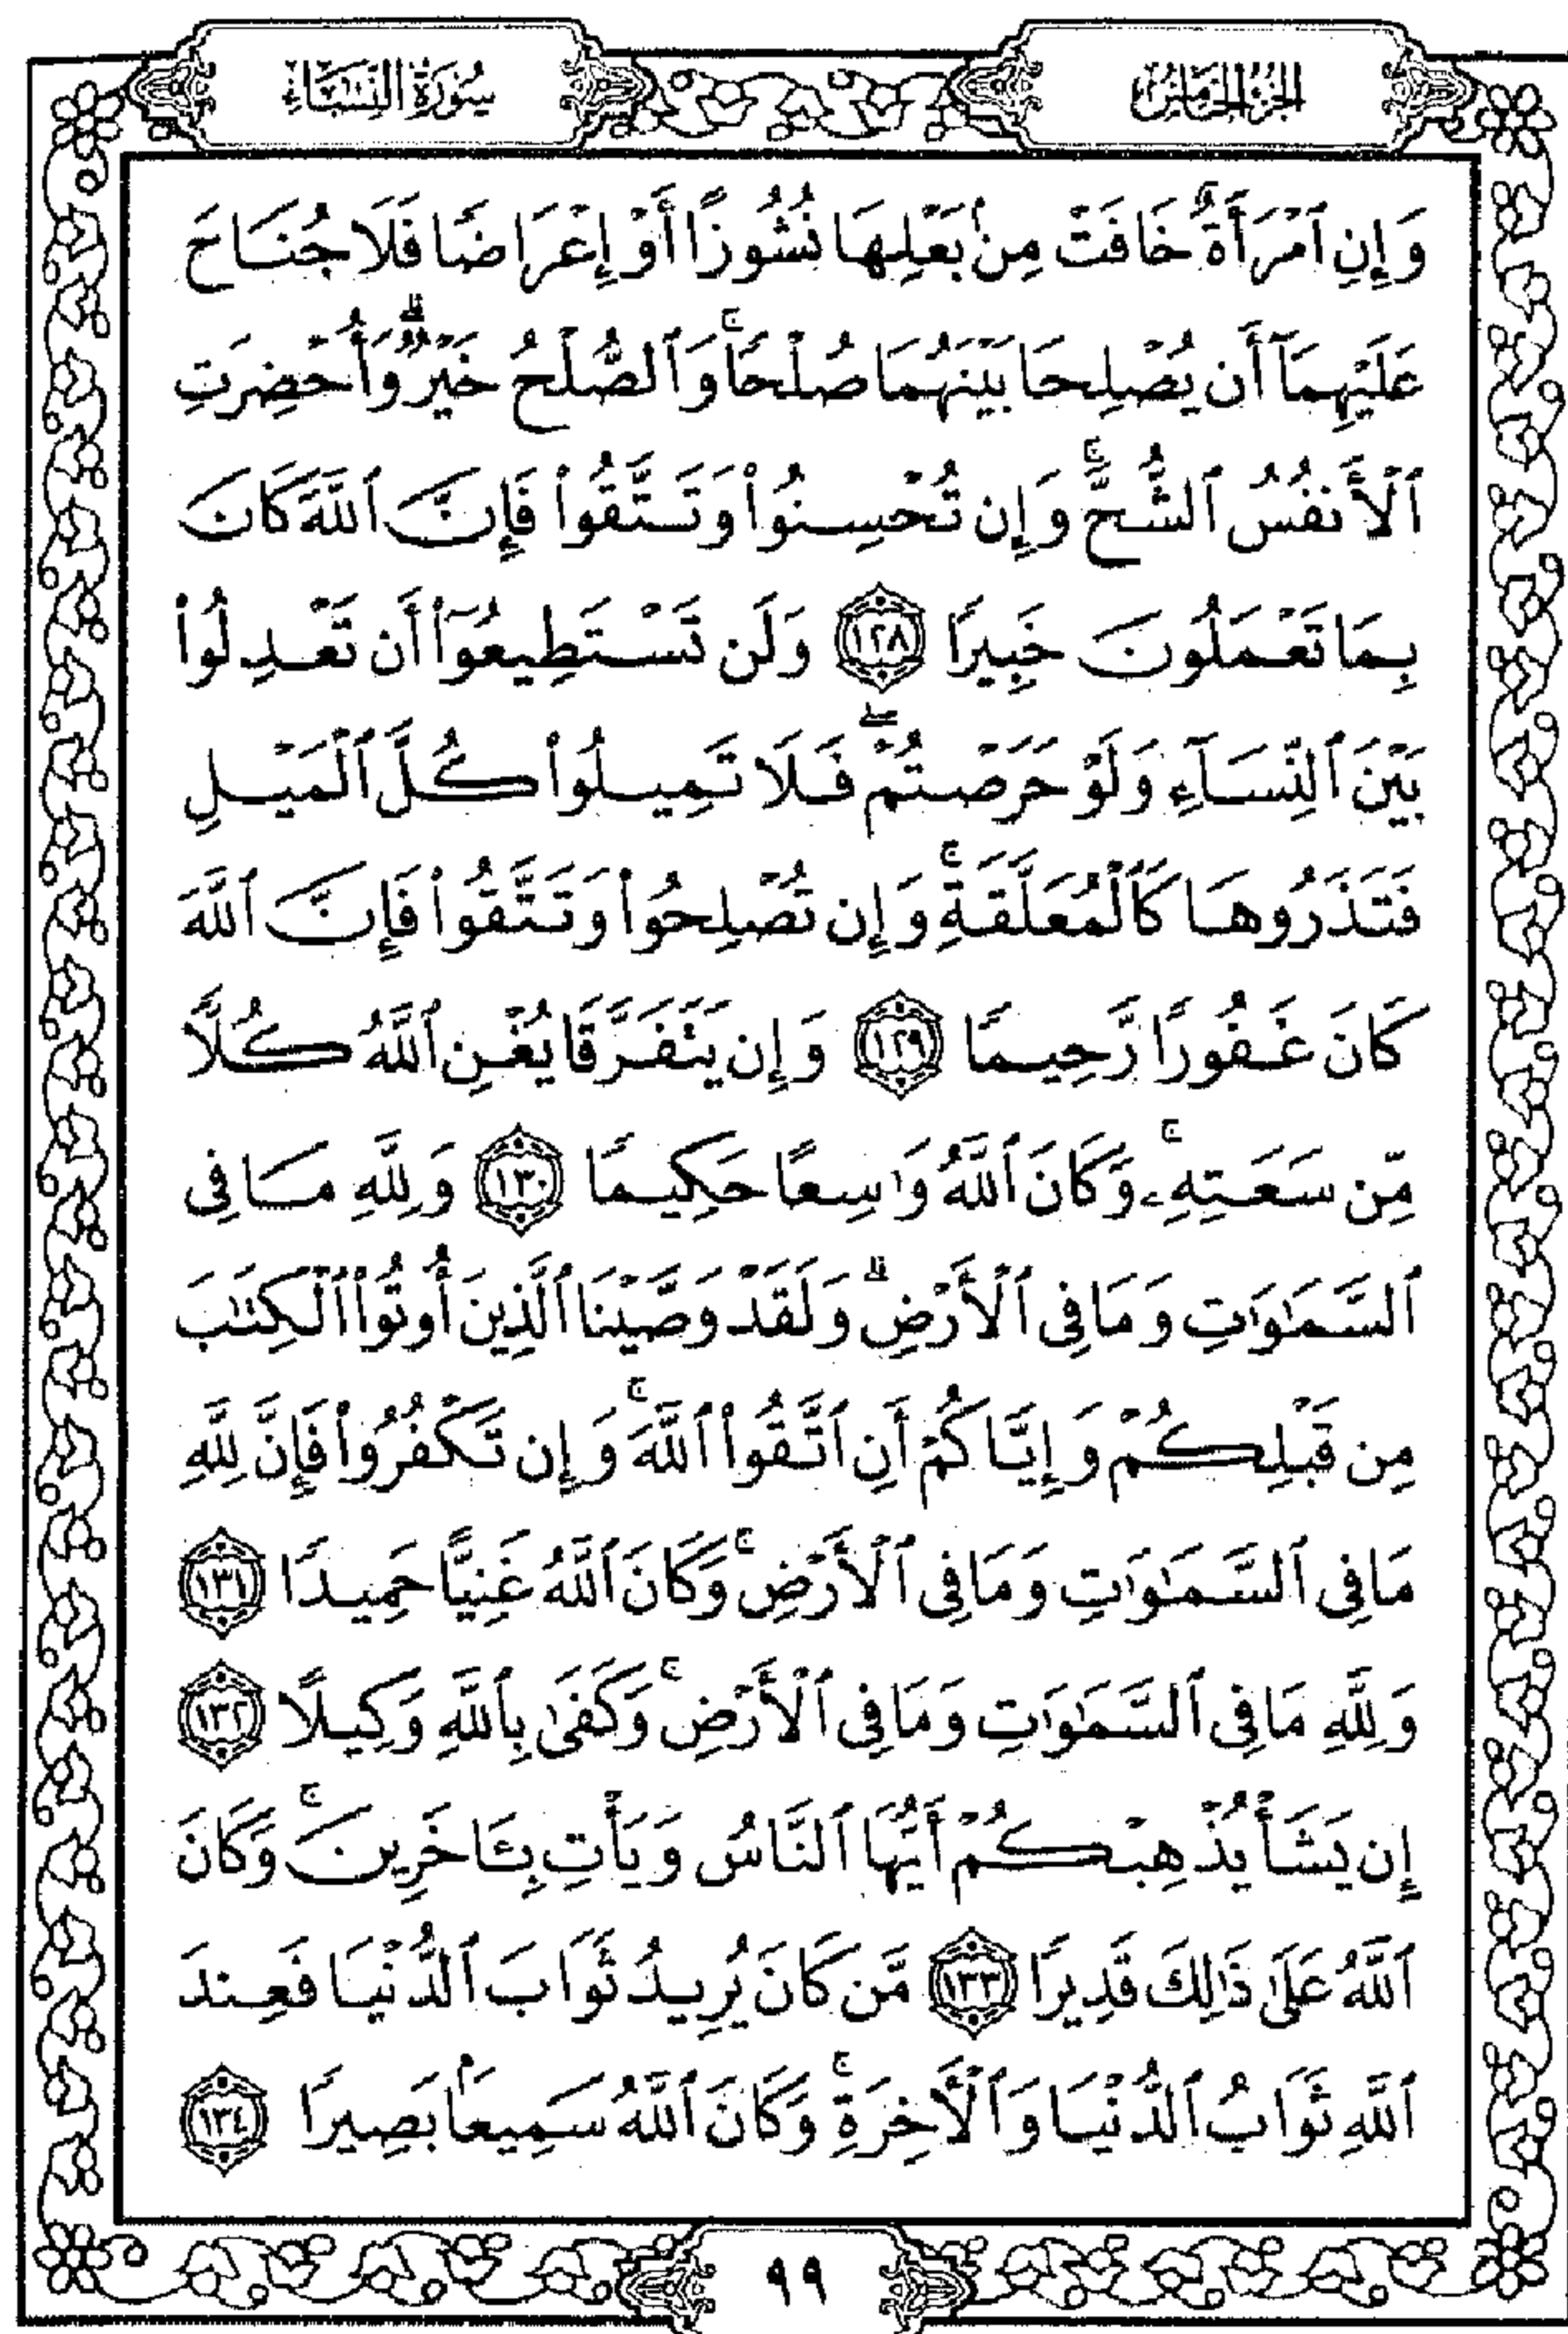 الجزء الخامس
سورة النساء
وَإِنِ ٱمْرَأَةٌ خَافَتْ مِنۢ بَعْلِهَا نُشُوزًا أَوْ إِعْرَاضًا فَلَا جُنَاحَ
عَلَيْهِمَآ أَن يُصْلِحَا بَيْنَهُمَا صُلْحًاۚ وَٱلصُّلْحُ خَيْرٌۗ وَأُحْضِرَتِ
ٱلْأَنفُسُ ٱلشُّحَّۚ وَإِن تُحْسِنُوا۟ وَتَتَّقُوا۟ فَإِنَّ ٱللَّهَ كَانَ
بِمَا تَعْمَلُونَ خَبِيرًا ١٢٨ وَلَن تَسْتَطِيعُوٓا۟ أَن تَعْدِلُوا۟
بَيْنَ ٱلنِّسَآءِ وَلَوْ حَرَصْتُمْۖ فَلَا تَمِيلُوا۟ كُلَّ ٱلْمَيْلِ
فَتَذَرُوهَا كَٱلْمُعَلَّقَةِۚ وَإِن تُصْلِحُوا۟ وَتَتَّقُوا۟ فَإِنَّ ٱللَّهَ
كَانَ غَفُورًا رَّحِيمًا ١٢٩ وَإِن يَتَفَرَّقَا يُغْنِ ٱللَّهُ كُلًّا
مِّن سَعَتِهِۦۚ وَكَانَ ٱللَّهُ وَٰسِعًا حَكِيمًا ١٣٠ وَلِلَّهِ مَا فِى
ٱلسَّمَٰوَٰتِ وَمَا فِى ٱلْأَرْضِۗ وَلَقَدْ وَصَّيْنَا ٱلَّذِينَ أُوتُوا۟ ٱلْكِتَٰبَ
مِن قَبْلِكُمْ وَإِيَّاكُمْ أَنِ ٱتَّقُوا۟ ٱللَّهَۚ وَإِن تَكْفُرُوا۟ فَإِنَّ لِلَّهِ
مَا فِى ٱلسَّمَٰوَٰتِ وَمَا فِى ٱلْأَرْضِۚ وَكَانَ ٱللَّهُ غَنِيًّا حَمِيدًا ١٣١
وَلِلَّهِ مَا فِى ٱلسَّمَٰوَٰتِ وَمَا فِى ٱلْأَرْضِۚ وَكَفَىٰ بِٱللَّهِ وَكِيلًا ١٣٢
إِن يَشَأْ يُذْهِبْكُمْ أَيُّهَا ٱلنَّاسُ وَيَأْتِ بِـَٔاخَرِينَۚ وَكَانَ
ٱللَّهُ عَلَىٰ ذَٰلِكَ قَدِيرًا ١٣٣ مَّن كَانَ يُرِيدُ ثَوَابَ ٱلدُّنْيَا فَعِندَ
ٱللَّهِ ثَوَابُ ٱلدُّنْيَا وَٱلْأَخِرَةِۚ وَكَانَ ٱللَّهُ سَمِيعًۢا بَصِيرًا ١٣٤
٩٩